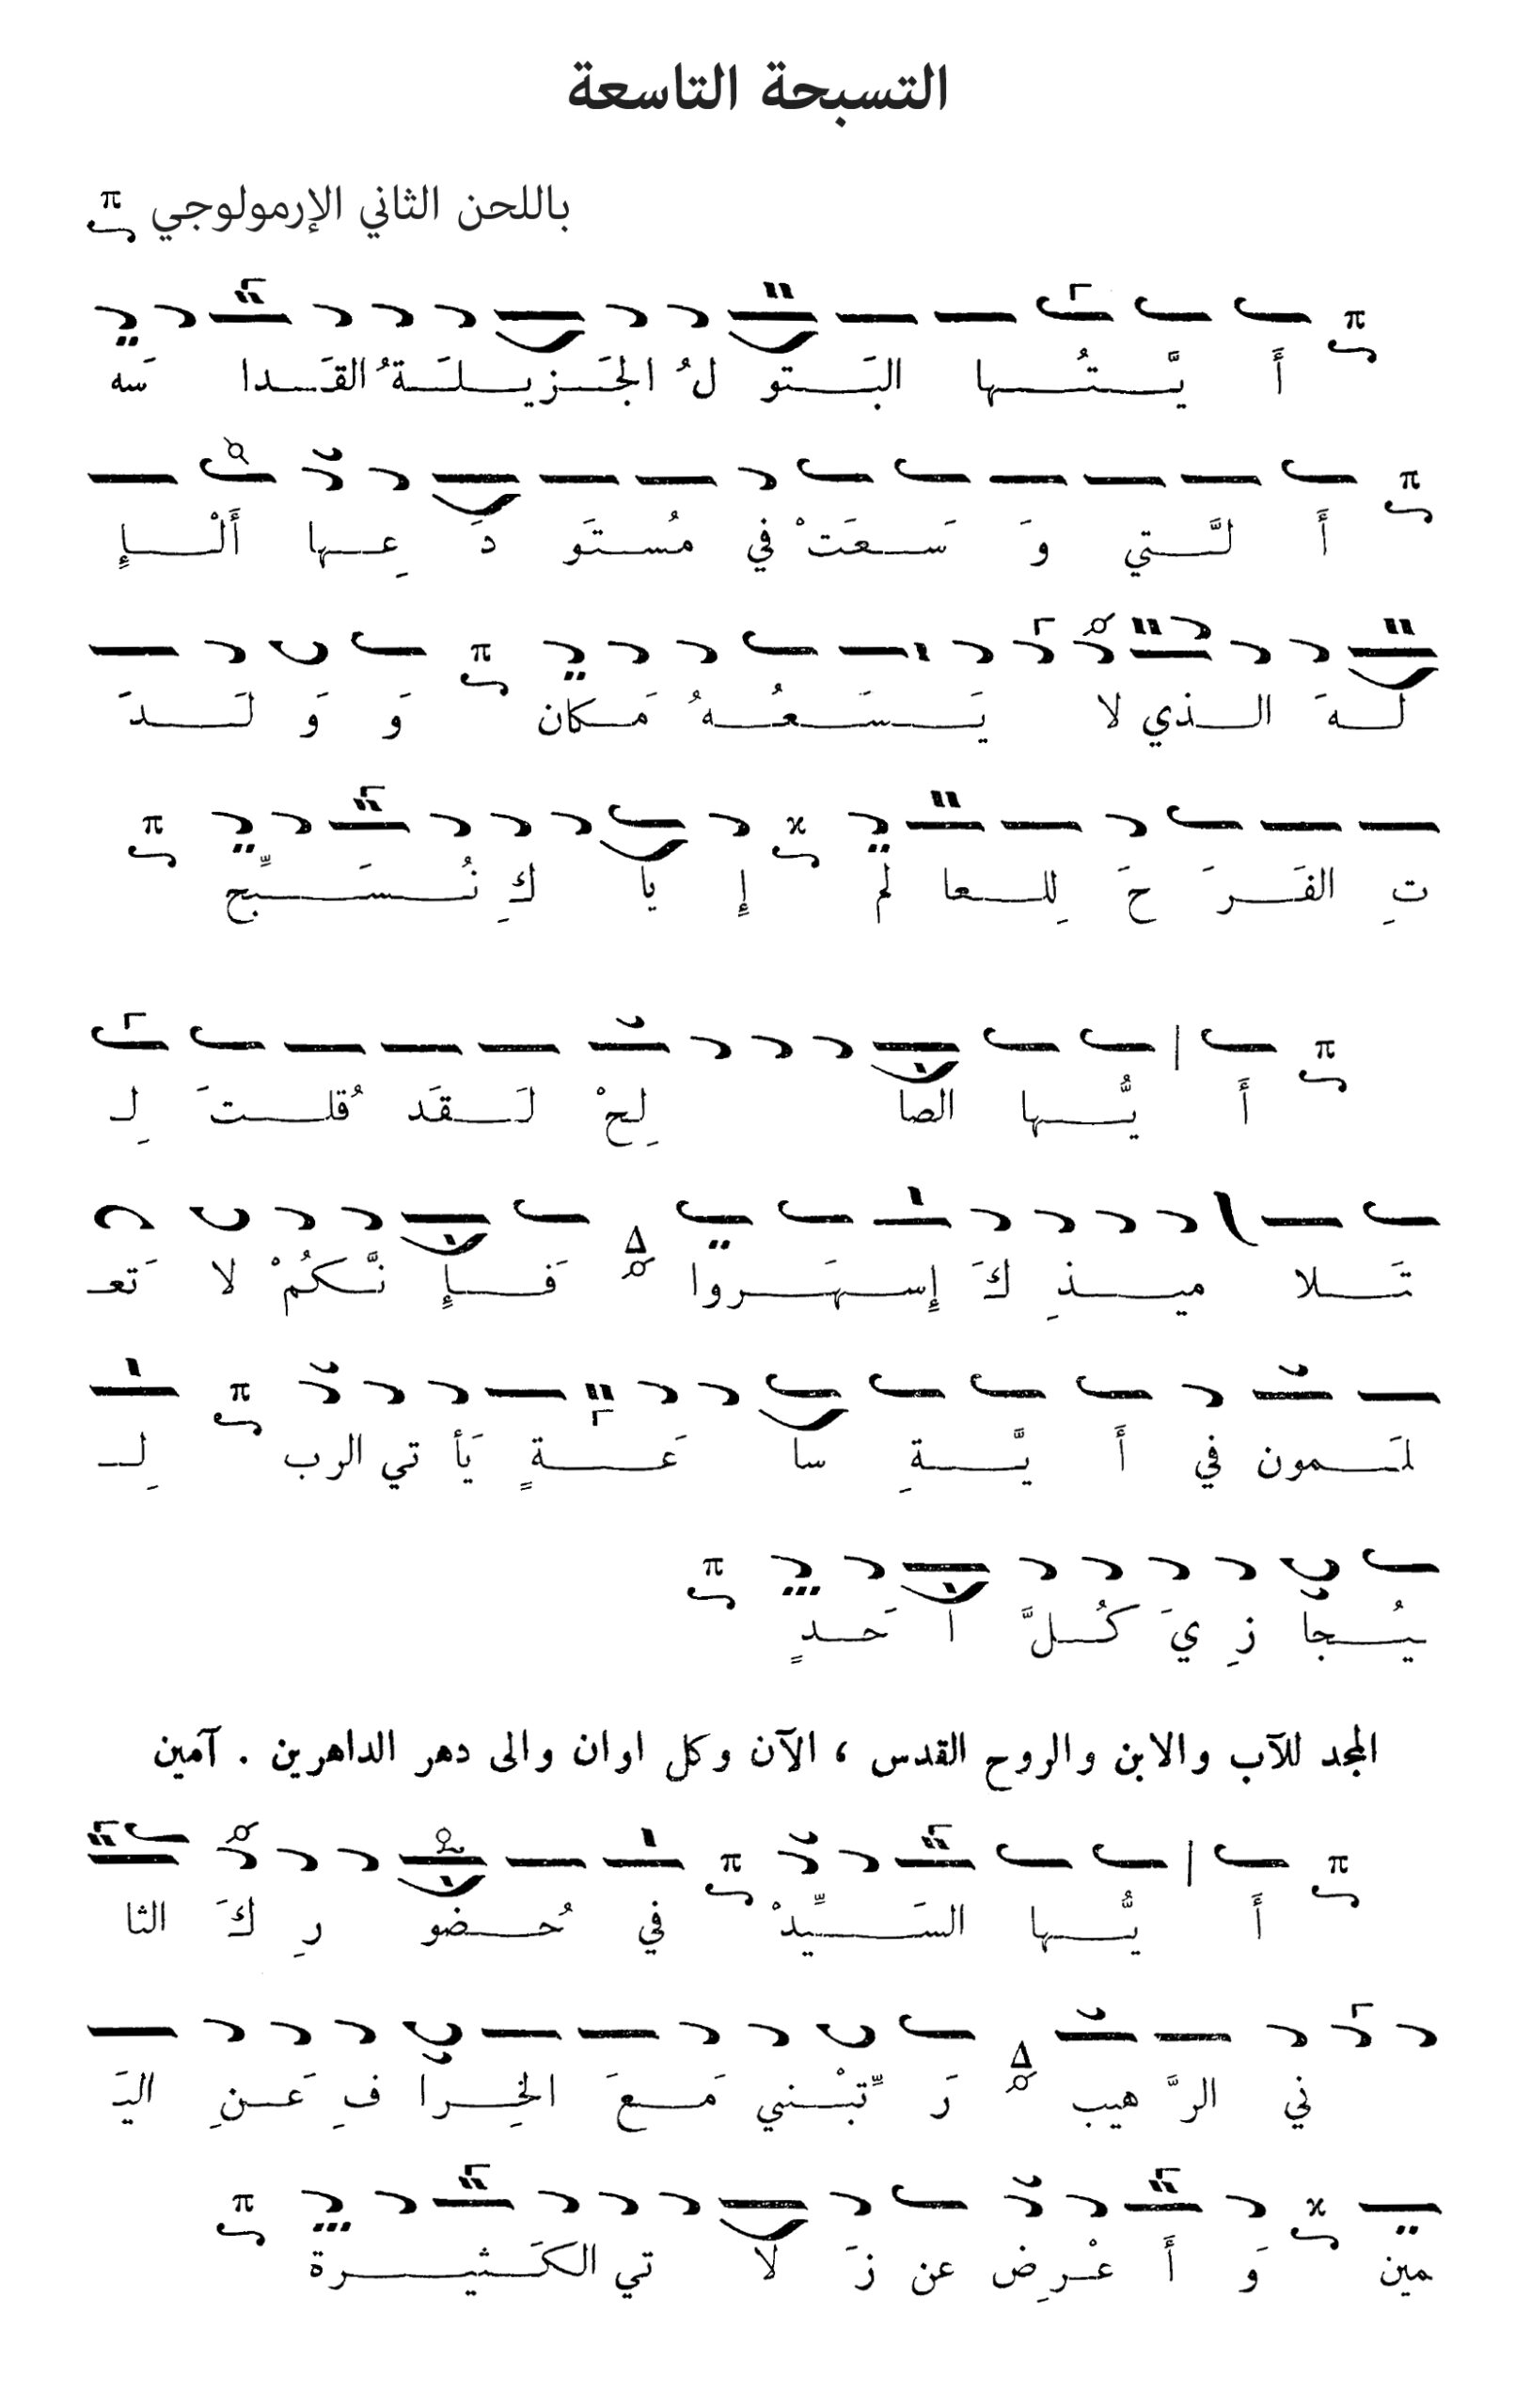 التسبحة التاسعة
باللحن الثاني الإرمولوجي π
π أَ يَّـتُـها البَـتو لُ الجَـزيـلَـةُ القَـدا سَه
π أَ لَّـتي وَ سَـعَتْ في مُستَو دَ عِـها أَلْـإِ
لـهَ الـذي لا يَـسَـعُـهُ مَـكان π وَ وَ لَـدَ
تِ الفَـرَ حَ لِلـعا لم ϰ إِ يا كِ نُـسَـبِّح π
π أَ يُّـها الصا لِحْ لَـقَد قُلـتَ لِـ
تَـلا ميـذِ كَ إِسـهَـروا Δ فَـإِ نَّـكُمْ لا تَعـ
لَمـون في أَ يَّـةِ سا عَـةٍ يَأ تي الرب π لِـ
يُـجا زِ يَ كُـلَّ ا حَـدٍ π
المجد للآب والابن والروح القدس ، الآن وكل اوان والى دهر الداهرين . آمين
π أَ يُّـها السَـيِّدْ π في حُـضو رِ كَ الثا
ني الرَّ هيب Δ رَ تِّبْـني مَـعَ الخِـرا فِ عَـنِ اليَـ
مين ϰ وَ أَ عْـرِض عن زَ لا تي الكَـثيـرة π